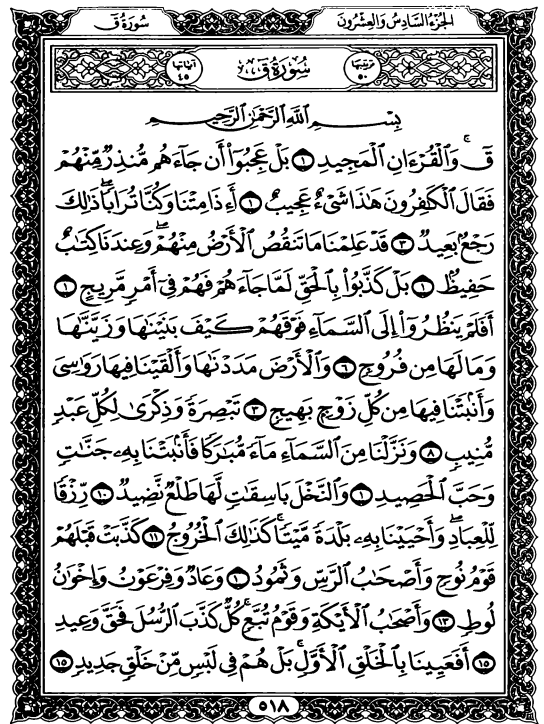 الجزء السادس والعشرون
سورة ق
ترتيبها ٥٠
سورة ق
آياتها ٤٥
بِسْمِ اللَّهِ الرَّحْمَٰنِ الرَّحِيمِ
قٓ ۚ وَالْقُرْءَانِ الْمَجِيدِ ١ بَلْ عَجِبُوٓا۟ أَن جَآءَهُم مُّنذِرٌ مِّنْهُمْ
فَقَالَ الْكَٰفِرُونَ هَٰذَا شَىْءٌ عَجِيبٌ ١ أَءِذَا مِتْنَا وَكُنَّا تُرَابًا ۖ ذَٰلِكَ
رَجْعٌۢ بَعِيدٌ ٣ قَدْ عَلِمْنَا مَا تَنقُصُ الْأَرْضُ مِنْهُمْ ۖ وَعِندَنَا كِتَٰبٌ
حَفِيظٌۢ ١ بَلْ كَذَّبُوا۟ بِالْحَقِّ لَمَّا جَآءَهُمْ فَهُمْ فِىٓ أَمْرٍ مَّرِيجٍ ١
أَفَلَمْ يَنظُرُوٓا۟ إِلَى السَّمَآءِ فَوْقَهُمْ كَيْفَ بَنَيْنَٰهَا وَزَيَّنَّٰهَا
وَمَا لَهَا مِن فُرُوجٍ ٦ وَالْأَرْضَ مَدَدْنَٰهَا وَأَلْقَيْنَا فِيهَا رَوَٰسِىَ
وَأَنۢبَتْنَا فِيهَا مِن كُلِّ زَوْجٍۭ بَهِيجٍ ٣ تَبْصِرَةً وَذِكْرَىٰ لِكُلِّ عَبْدٍ
مُّنِيبٍ ٨ وَنَزَّلْنَا مِنَ السَّمَآءِ مَآءً مُّبَٰرَكًا فَأَنۢبَتْنَا بِهِۦ جَنَّٰتٍ
وَحَبَّ الْحَصِيدِ ١ وَالنَّخْلَ بَاسِقَٰتٍ لَّهَا طَلْعٌ نَّضِيدٌ ١٠ رِّزْقًا
لِّلْعِبَادِ ۖ وَأَحْيَيْنَا بِهِۦ بَلْدَةً مَّيْتًا ۚ كَذَٰلِكَ الْخُرُوجُ ١١ كَذَّبَتْ قَبْلَهُمْ
قَوْمُ نُوحٍ وَأَصْحَٰبُ الرَّسِّ وَثَمُودُ ١ وَعَادٌ وَفِرْعَوْنُ وَإِخْوَٰنُ
لُوطٍ ١٣ وَأَصْحَٰبُ الْأَيْكَةِ وَقَوْمُ تُبَّعٍ ۚ كُلٌّ كَذَّبَ الرُّسُلَ فَحَقَّ وَعِيدِ
١٥ أَفَعَيِينَا بِالْخَلْقِ الْأَوَّلِ ۚ بَلْ هُمْ فِى لَبْسٍ مِّنْ خَلْقٍ جَدِيدٍ ١٥
٥١٨